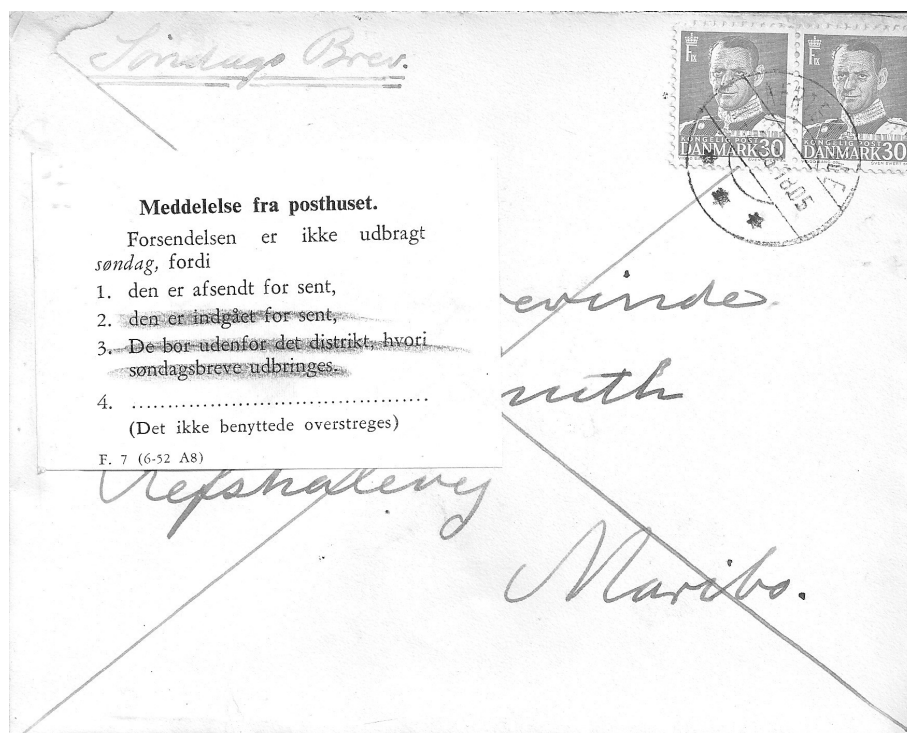 Søndags Brev.
F IX F IX
KONGELIG POST KONGELIG POST
DANMARK 30 DANMARK 30
Meddelelse fra posthuset.
Forsendelsen er ikke udbragt
søndag, fordi
1. den er afsendt for sent,
2. den er indgået for sent,
3. De bor udenfor det distrikt, hvori
søndagsbreve udbringes.
4. ..........................................
(Det ikke benyttede overstreges)
F. 7 (6-52 A8)
Refshalevej
Maribo.